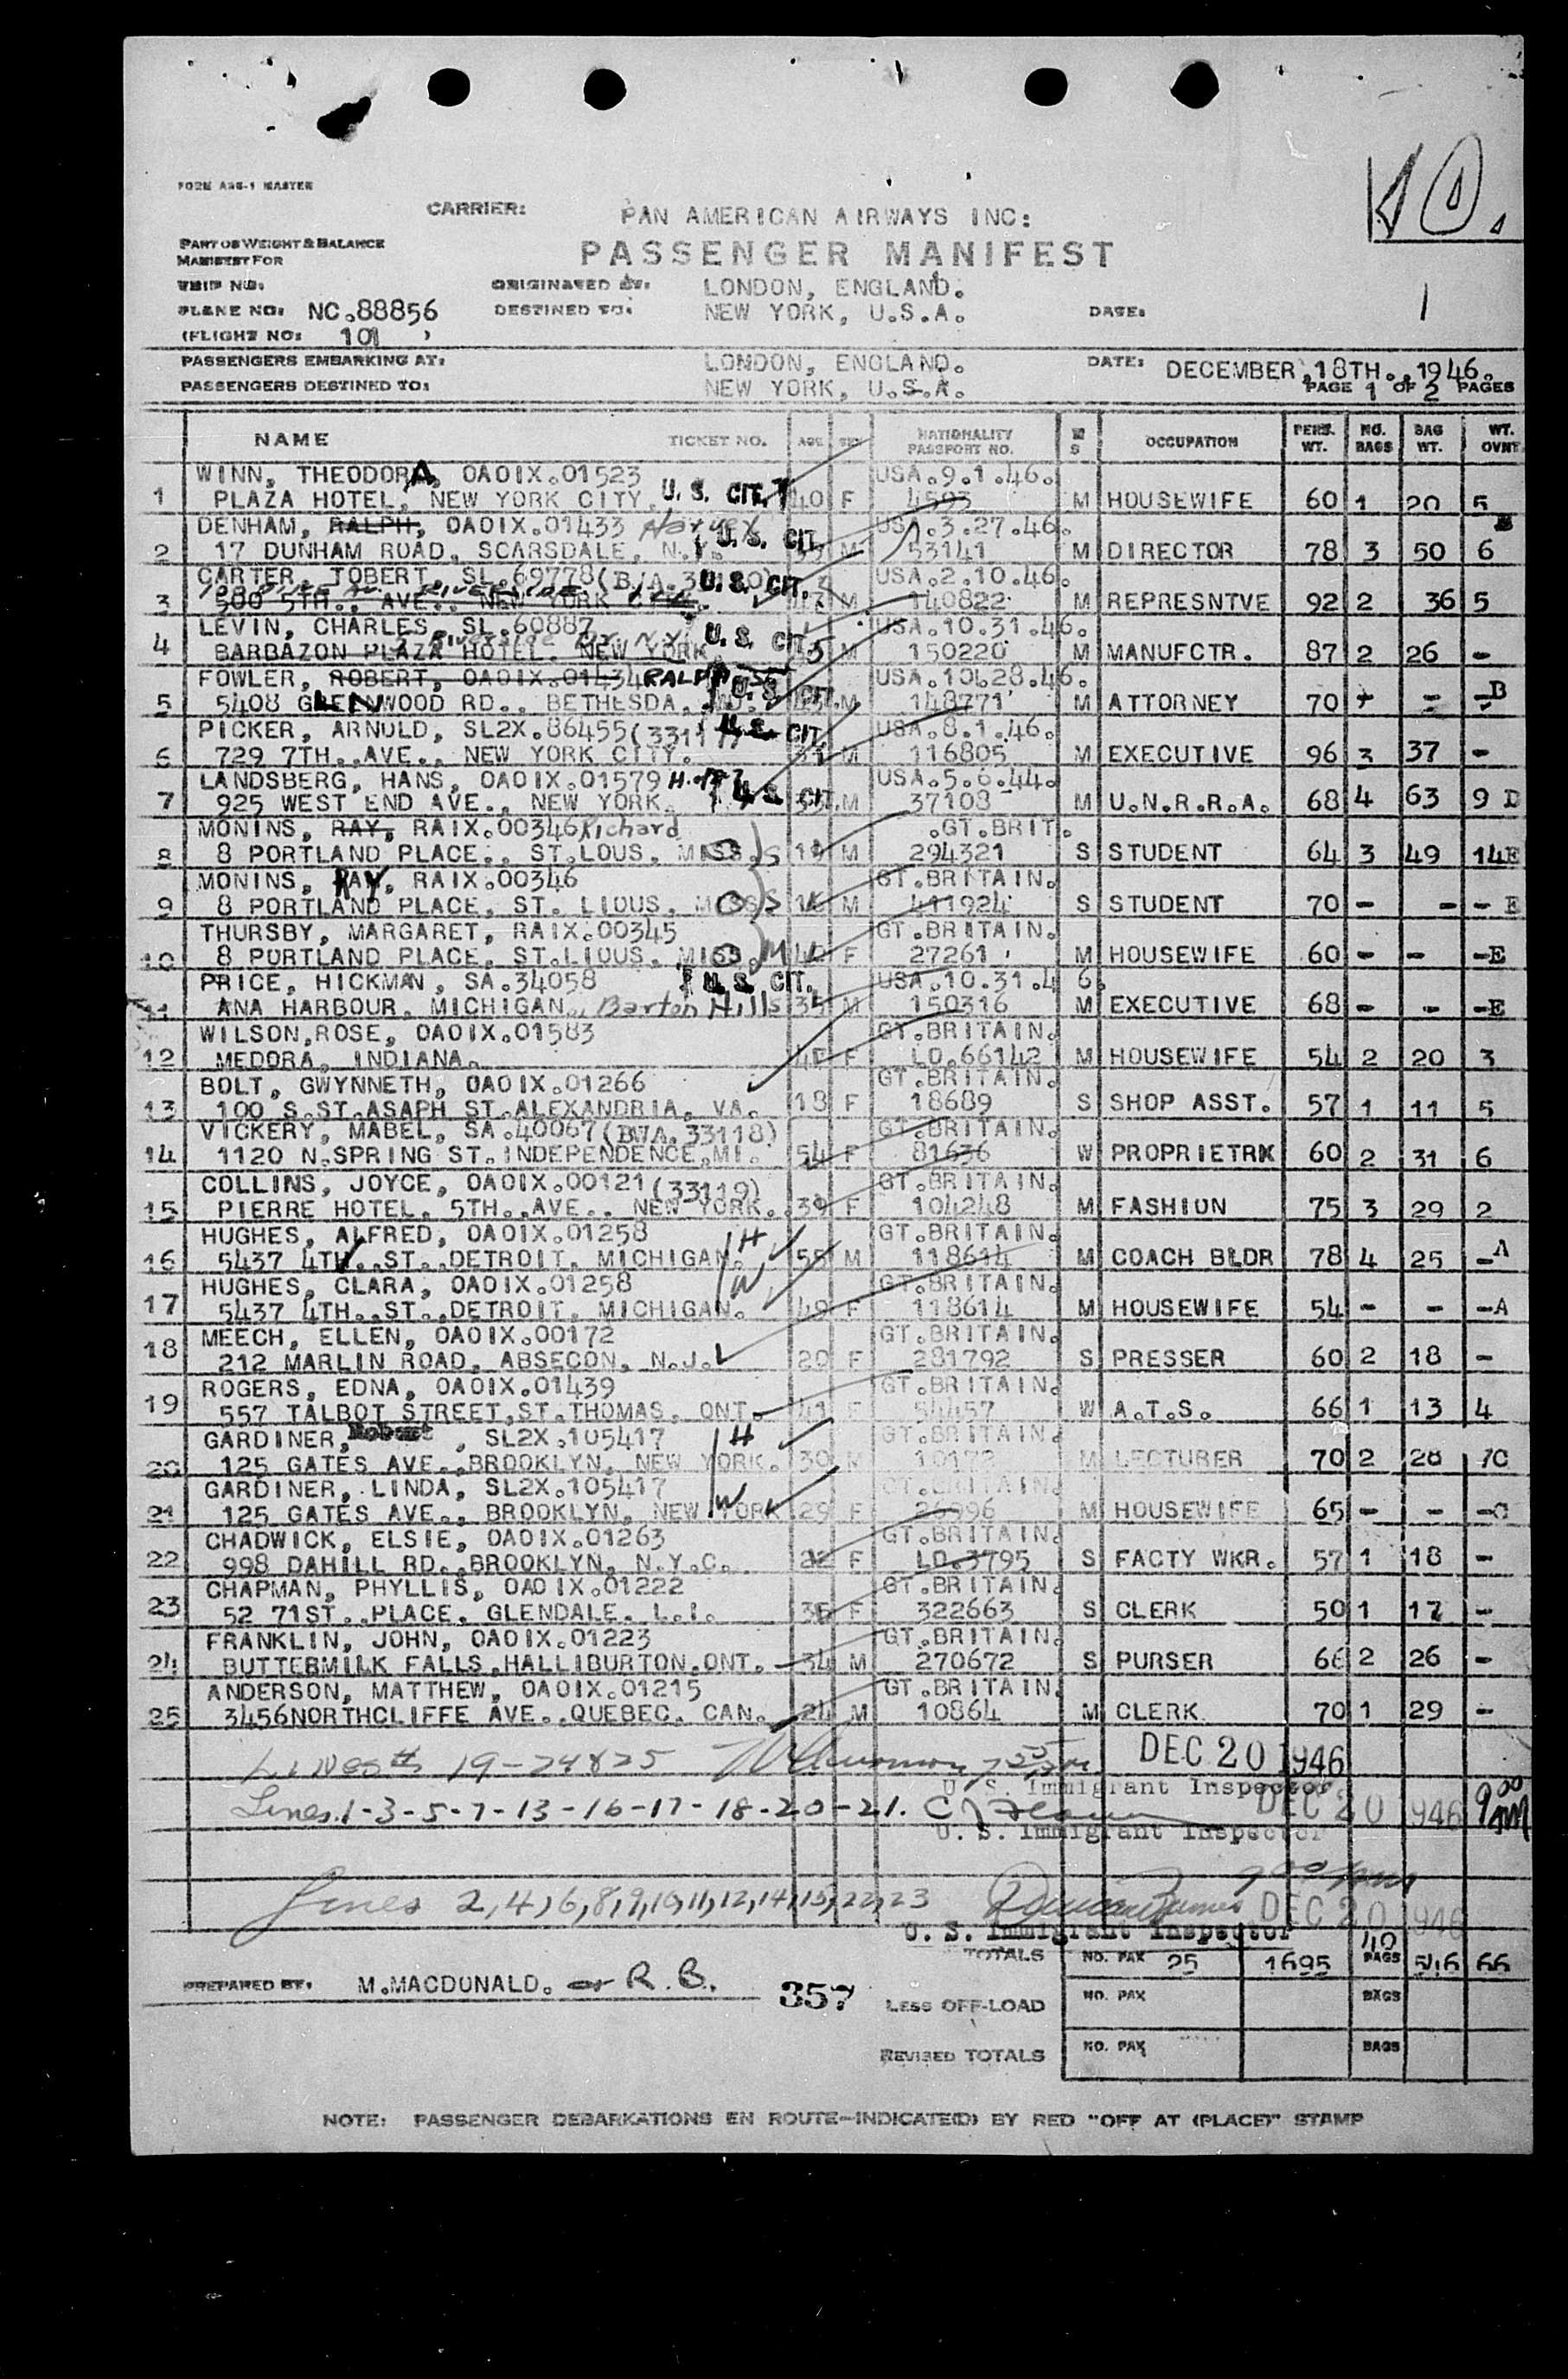 FORM ASS-1 MASTER
CARRIER: PAN AMERICAN AIRWAYS INC:
PART OF WEIGHT & BALANCE
MANIFEST FOR
PASSENGER MANIFEST
TRIP NO: ORIGINATED AT: LONDON, ENGLAND.
PLANE NO: NC.88856 DESTINED TO: NEW YORK, U.S.A. DATE: 1
(FLIGHT NO: 101 )
PASSENGERS EMBARKING AT: LONDON, ENGLAND. DATE: DECEMBER,18TH.,1946.
PASSENGERS DESTINED TO: NEW YORK, U.S.A. PAGE 1 OF 2 PAGES
NAME TICKET NO. AGE SEX NATIONALITY PASSPORT NO. M S OCCUPATION PERS. WT. NO. BAGS BAG WT. WT. OVNT
WINN, THEODORA, OAOIX.01523 USA.9.1.46.
1 PLAZA HOTEL, NEW YORK CITY. U.S. CIT. 40 F 4593 M HOUSEWIFE 60 1 20 5
DENHAM, RALPH, OAOIX.01433 Harvey USA.3.27.46.
2 17 DUNHAM ROAD, SCARSDALE, N.Y. U.S. CIT. M 53141 M DIRECTOR 78 3 50 6
CARTER, TOBERT, SL.69778 USA.2.10.46.
3 500 5TH., AVE., NEW YORK CITY. U.S. CIT. 47 M 140822 M REPRESNTVE 92 2 36 5
LEVIN, CHARLES, SL.60887 USA.10.31.46.
4 BARBAZON PLAZA HOTEL. NEW YORK Riverside Dr. N.Y. U.S. CIT. M 150220 M MANUFCTR. 87 2 26 -
FOWLER, ROBERT, OAOIX.01434 RALPH USA.10.28.46.
5 5408 GLENWOOD RD., BETHESDA, MD. U.S. CIT. M 148771 M ATTORNEY 70 - - -B
PICKER, ARNOLD, SL2X.86455 USA.8.1.46.
6 729 7TH.,AVE., NEW YORK CITY. U.S. CIT. M 116805 M EXECUTIVE 96 3 37 -
LANDSBERG, HANS, OAOIX.01579 USA.5.6.44.
7 925 WEST END AVE., NEW YORK. U.S. CIT. M 37108 M U.N.R.R.A. 68 4 63 9 D
MONINS, RAY, RAIX.00346 Richard .GT.BRIT.
8 8 PORTLAND PLACE., ST.LOUS, MISS. S M 294321 S STUDENT 64 3 49 14E
MONINS, RAY, RAIX.00346 GT.BRITAIN.
9 8 PORTLAND PLACE, ST. LIOUS, MISS S M 411924 S STUDENT 70 - - - E
THURSBY, MARGARET, RAIX.00345 GT.BRITAIN.
10 8 PORTLAND PLACE, ST.LIOUS, MISS. M F 27261 M HOUSEWIFE 60 - - -E
PRICE, HICKMAN, SA.34058 U.S. CIT. USA.10.31.46.
11 ANA HARBOUR, MICHIGAN. Barton Hills 35 M 150316 M EXECUTIVE 68 - - -E
WILSON,ROSE, OAOIX.01583 GT.BRITAIN.
12 MEDORA, INDIANA. F LO.66142 M HOUSEWIFE 54 2 20 3
BOLT, GWYNNETH, OAOIX.01266 GT.BRITAIN.
13 100 S.ST.ASAPH ST.ALEXANDRIA, VA. 18 F 18689 S SHOP ASST. 57 1 11 5
VICKERY, MABEL, SA.40067(BWA.33118) GT.BRITAIN.
14 1120 N.SPRING ST.INDEPENDENCE,MI. 54 F 81636 W PROPRIETRX 60 2 31 6
COLLINS, JOYCE, OAOIX.00121(33119) GT.BRITAIN.
15 PIERRE HOTEL, 5TH.,AVE., NEW YORK. F 104248 M FASHION 75 3 29 2
HUGHES, ALFRED, OAOIX.01258 H GT.BRITAIN.
16 5437 4TH.,ST.,DETROIT, MICHIGAN. 55 M 118614 M COACH BLDR 78 4 25 -A
HUGHES, CLARA, OAOIX.01258 W GT.BRITAIN.
17 5437 4TH.,ST.,DETROIT, MICHIGAN. 49 F 118614 M HOUSEWIFE 54 - - -A
MEECH, ELLEN, OAOIX.00172 GT.BRITAIN.
18 212 MARLIN ROAD, ABSECON, N.J. 20 F 281792 S PRESSER 60 2 18 -
ROGERS, EDNA, OAOIX.01439 GT.BRITAIN.
19 557 TALBOT STREET,ST.THOMAS, ONT. 41 F 54457 W A.T.S. 66 1 13 4
GARDINER, Robert , SL2X.105417 H GT.BRITAIN.
20 125 GATES AVE.,BROOKLYN, NEW YORK. 30 M 10172 M LECTURER 70 2 28 10
GARDINER, LINDA, SL2X.105417 W GT.BRITAIN.
21 125 GATES AVE., BROOKLYN, NEW YORK 29 F 26996 M HOUSEWIFE 65 - - -C
CHADWICK, ELSIE, OAOIX.01263 GT.BRITAIN.
22 998 DAHILL RD.,BROOKLYN, N.Y.C. F LO.3795 S FACTY WKR. 57 1 18 -
CHAPMAN, PHYLLIS, OAOIX.01222 GT.BRITAIN.
23 52 71ST.,PLACE, GLENDALE, L.I. 36 F 322663 S CLERK 50 1 17 -
FRANKLIN, JOHN, OAOIX.01223 GT.BRITAIN.
24 BUTTERMILK FALLS,HALLIBURTON,ONT. 34 M 270672 S PURSER 66 2 26 -
ANDERSON, MATTHEW, OAOIX.01215 GT.BRITAIN.
25 3456NORTHCLIFFE AVE.,QUEBEC, CAN. 24 M 10864 M CLERK 70 1 29 -
19-24 & 25 DEC 20 1946
U. S. Immigrant Inspector
Lines.1-3-5-7-13-16-17-18-20-21. DEC 20 1946 9 00 PM
U. S. Immigrant Inspector
Lines 2,4,6,8,9,10,11,12,14,15,22,23 DEC 20 1946
U. S. Immigrant Inspector
TOTALS NO. PAX 25 1695 40 BAGS 546 66
PREPARED BY: M.MACDONALD. or R.B. 357
LESS OFF-LOAD NO. PAX BAGS
REVISED TOTALS NO. PAX BAGS
NOTE: PASSENGER DEBARKATIONS EN ROUTE-INDICATE(D) BY RED "OFF AT (PLACE)" STAMP